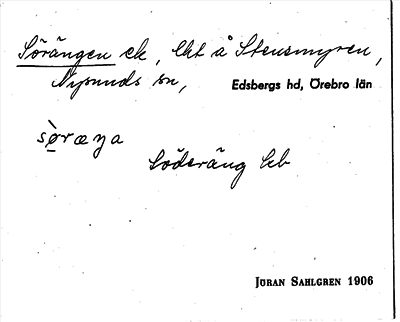 Sörängen ek, lht å Stensmyren,
Nysunds sn, Edsbergs hd, Örebro län
sø̀ræŋa
Söderäng kb
JÖRAN SAHLGREN 1906